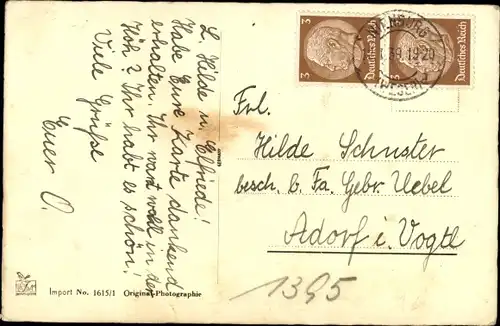 L. Hilde u. Elfriede!
Habe Eure Karte dankend
erhalten. Ihr wart wohl in der
Höh? Ihr habt es schön!
Viele Grüße
Euer O.
3
Deutsches Reich
3
Deutsches Reich
39.1920
Frl.
Hilde Schuster
besch. b. Fa. Gebr. Uebel
Adorf i. Vogtl
1395
Import No. 1615/1 Original-Photographie